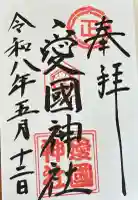 奉拝
愛國神社
令和八年五月十二日
愛國
神社